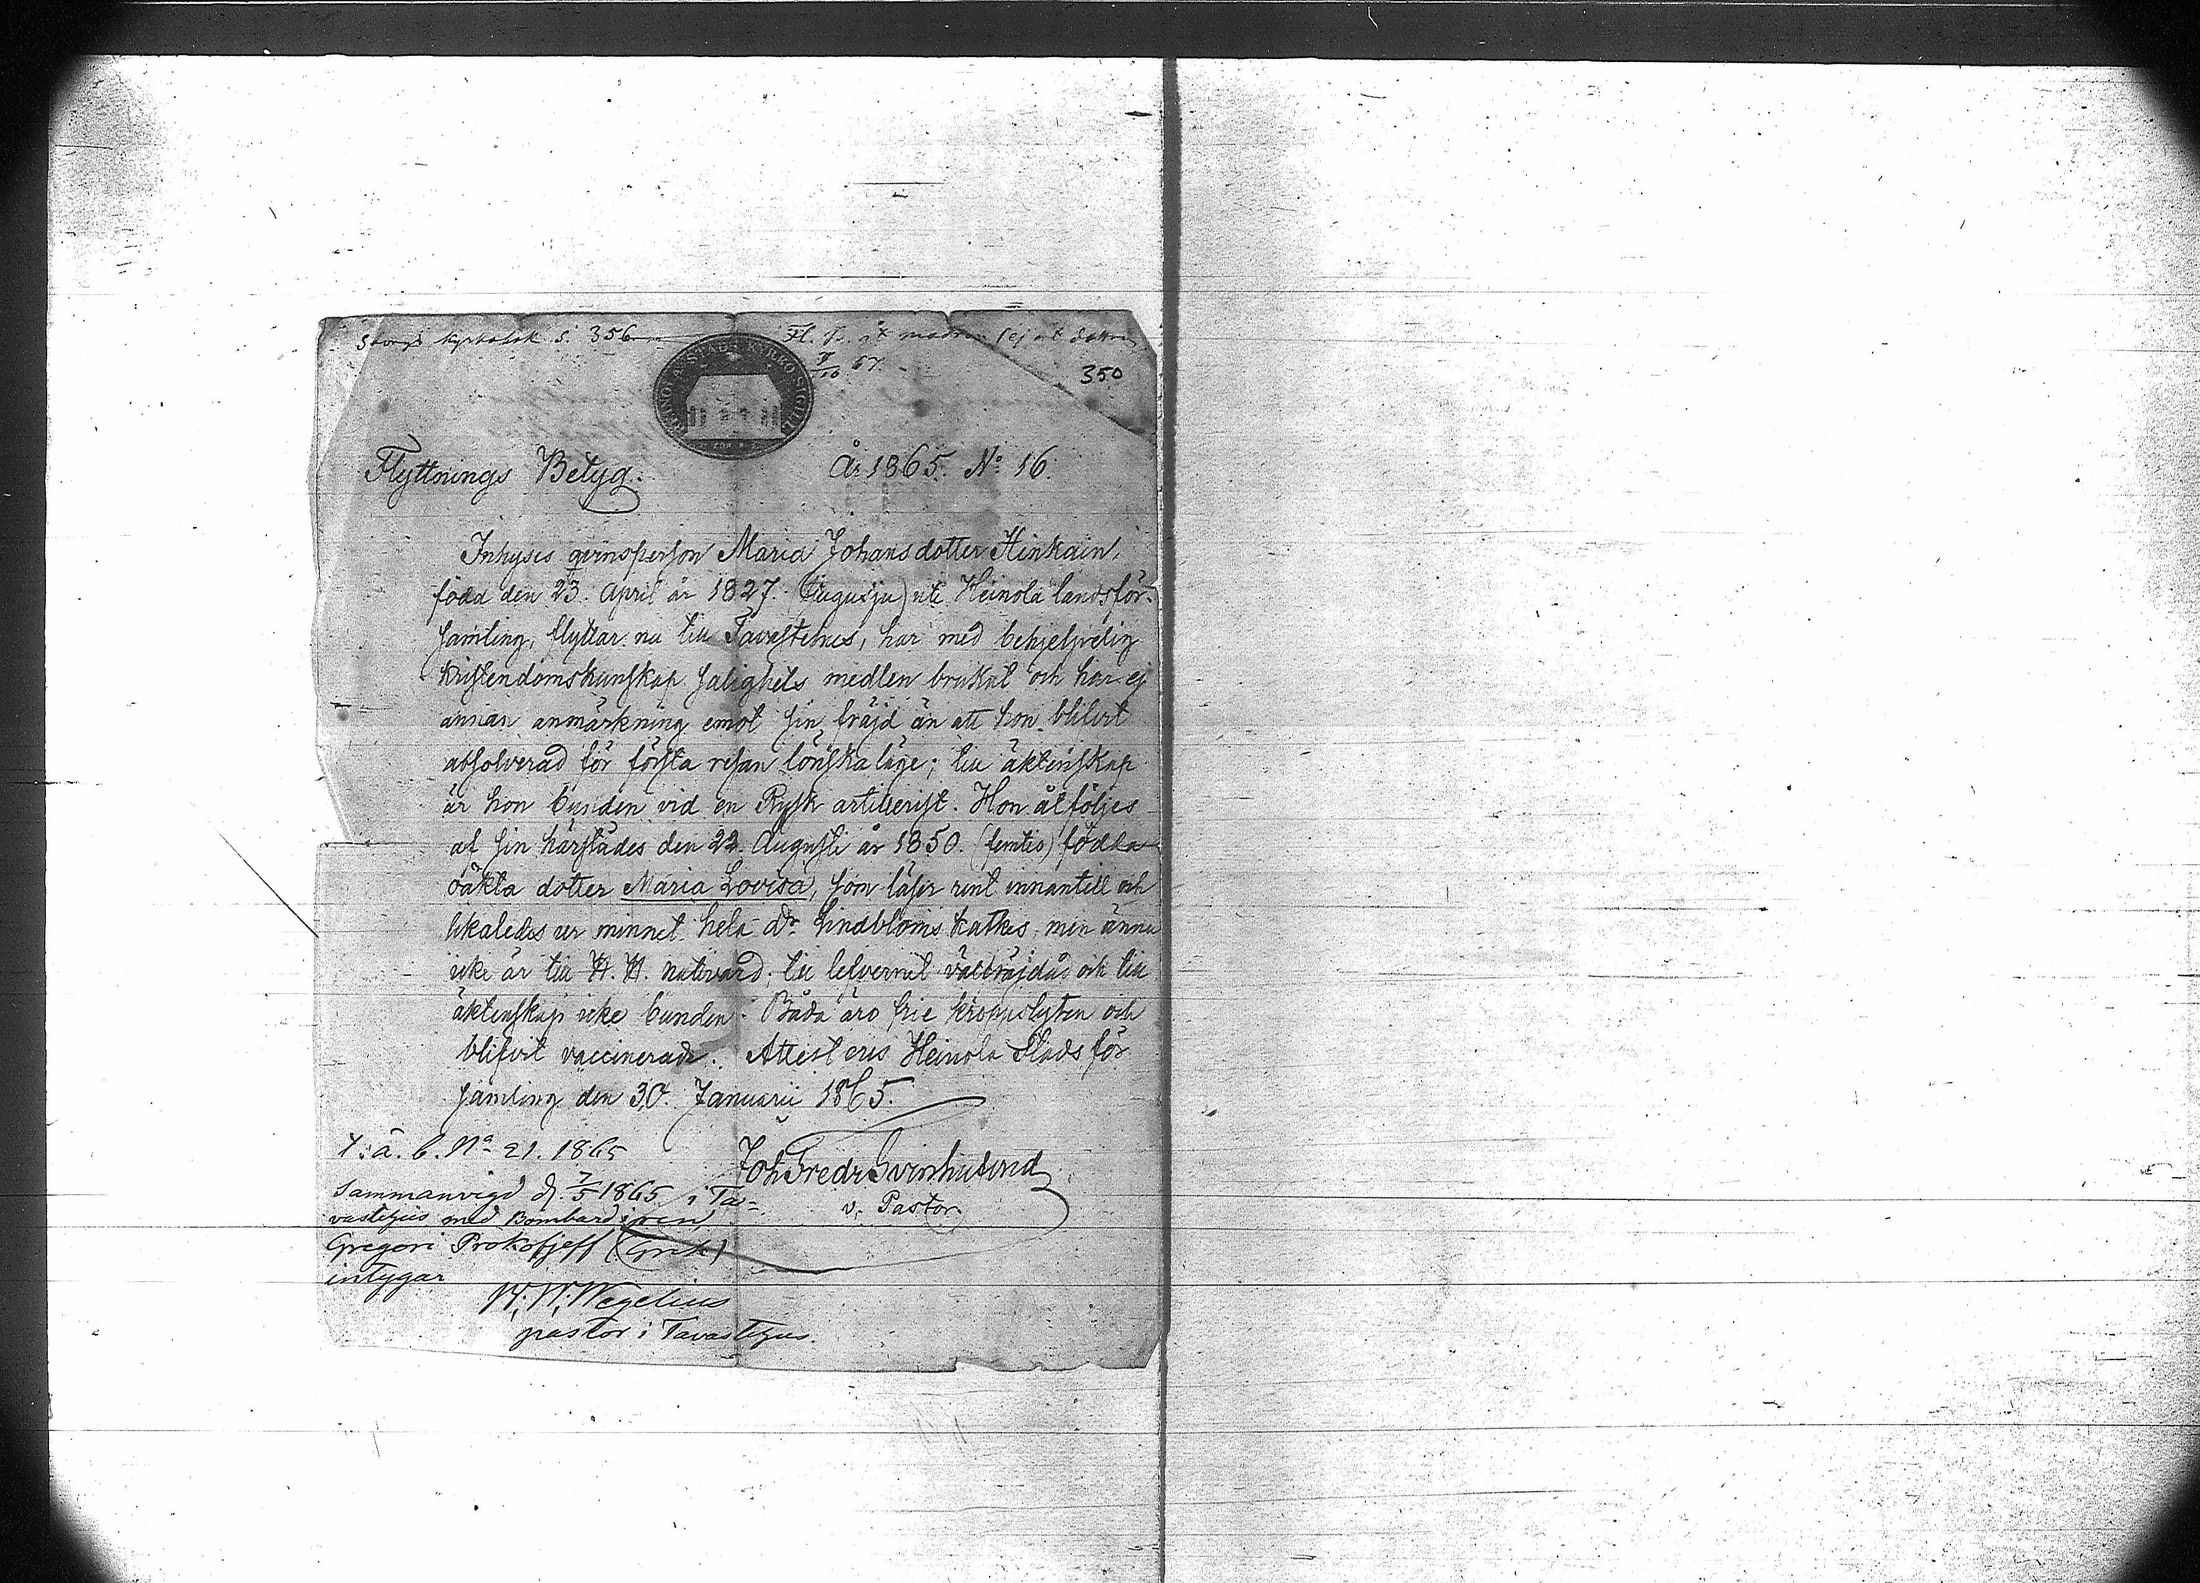 kyrkobok S. 356 Fl. B. åt modren (ej åt dottren
10 67.
350
HEINOLA STADS KYRKO SIGILL
Flyttnings Betyg. År 1865. No 16.
Inhyses qvinsperson Maria Johansdotter Hinkain,
född den 23. April år 1827. (tjugusju) uti Heinola landsför-
samling, flyttar nu till Tavastehus, har med behjelpelig
kristendomskunskap salighets medlen brukat och har ej
annan anmärkning emot sin fräjd än att hon blifvit
absolverad för första resan lönskaläge; till äktenskap
är hon bunden vid en Rysk artillerist. Hon åtföljes
af sin härstädes den 22. Augusti år 1850. (femtio) födda
oäkta dotter Maria Lovisa, som läser rent innantill och
likaledes ur minnet hela Dr. Lindbloms katkes, men ännu
icke är till H. H. nattvard, till lefvernet välfräjdad och till
äktenskap icke bunden. Båda äro frie kroppslyten och
blifvit vaccinerade. Attest. Heinola Stadsför
samling den 30. Januarii 1865.
No 21. 1865
Joh Fredr Svinhufvud
v. Pastor.
Sammanvigd d. 7/5 1865 i Ta-
vastehus med Bombardiren
Gregori Prokofjeff (Grek)
intygar
W. Wegelius
pastor i Tavastehus.